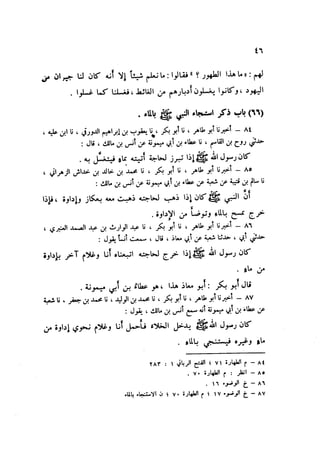 ٤٦
لهم : « ما هذا الطهور ؟ » فقالوا : ما نعلم شيئاً إلا أنه كان لنا جيران من
اليهود ، وكانوا يغسلون أدبارهم من الغائط ، فغسلنا كما غسلوا .
(٦٦) باب ذكر استنجاء النبي ﷺ بالماء .
٨٤ – أخبرنا أبو طاهر ، نا أبو بكر ، نا يعقوب بن إبراهيم الدورقي ، نا ابن علية ،
حدثني روح بن القاسم ، نا عطاء بن أبي ميمونة عن أنس بن مالك ، قال :
كان رسول الله ﷺ إذا تبرز لحاجته أتيته بماء فيغتسل به .
٨٥ – أخبرنا أبو طاهر ، نا أبو بكر ، نا محمد بن خالد بن خداش الزهراني ،
نا سالم بن قتيبة عن شعبة عن عطاء بن أبي ميمونة عن أنس بن مالك :
أن النبي ﷺ كان إذا ذهب لحاجته ذهبت معه بعكاز وإداوة ، فإذا
خرج تمسح بالماء وتوضأ من الإداوة .
٨٦ – أخبرنا أبو طاهر ، نا أبو بكر ، نا عبد الوارث بن عبد الصمد العنبري ،
حدثني أبي ، حدثنا شعبة عن أبي معاذ ، قال ، سمعت أنساً يقول :
كان رسول الله ﷺ إذا خرج لحاجته اتبعناه أنا وغلام آخر بإداوة
من ماء .
قال أبو بكر : أبو معاذ هذا ، هو عطاء بن أبي ميمونة .
٨٧ – أخبرنا أبو طاهر ، نا أبو بكر ، نا محمد بن الوليد ، نا محمد بن جعفر ، نا شعبة
عن عطاء بن أبي ميمونة أنه سمع أنس بن مالك ، يقول :
كان رسول الله ﷺ يدخل الخلاء فأحمل أنا وغلام نحوي إداوة من
ماء وغيره فيستنجي بالماء .
٨٤ – م الطهارة ٧١ ؛ الفتح الرباني ١ : ٢٨٣
٨٥ – انظر : م الطهارة ٧٠ .
٨٦ – خ الوضوء ١٦ .
٨٧ – خ الوضوء ١٧ ؛ م الطهارة ٧٠ ؛ ن الاستنجاء بالماء